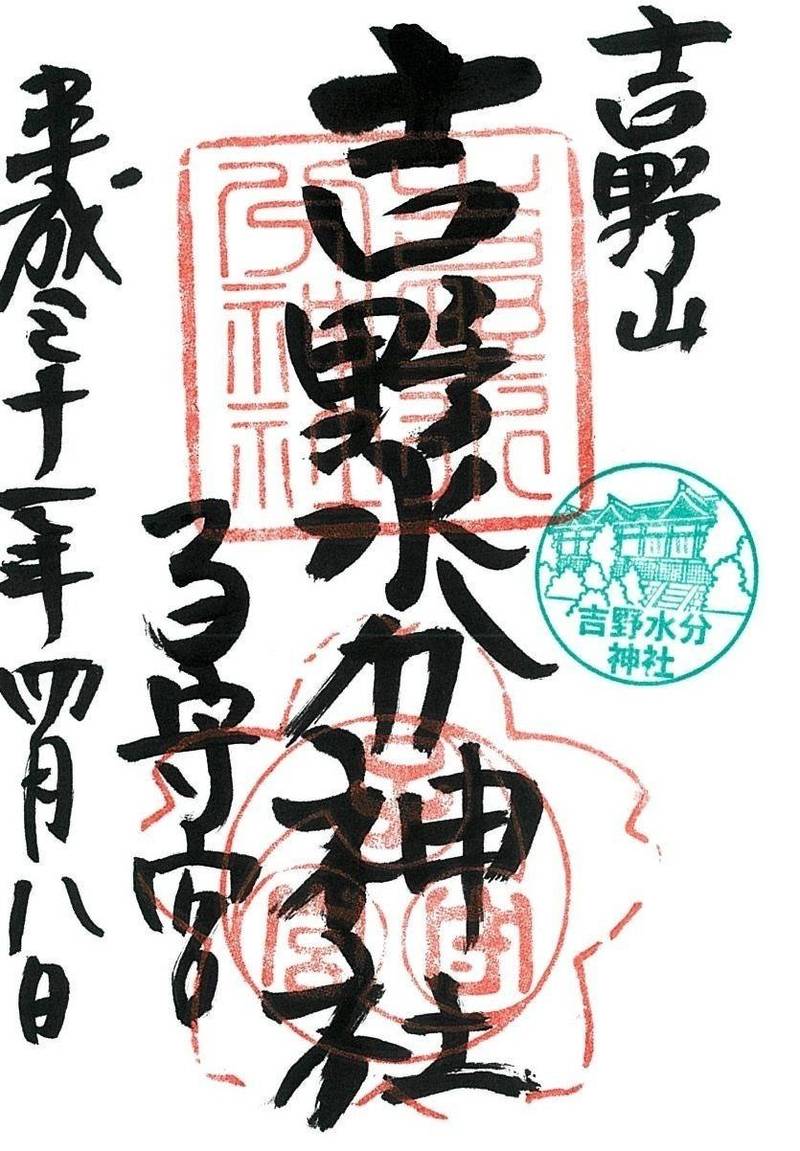 吉野山
吉野水分神社
子守宮
平成三十一年四月八日
吉野水分
神社